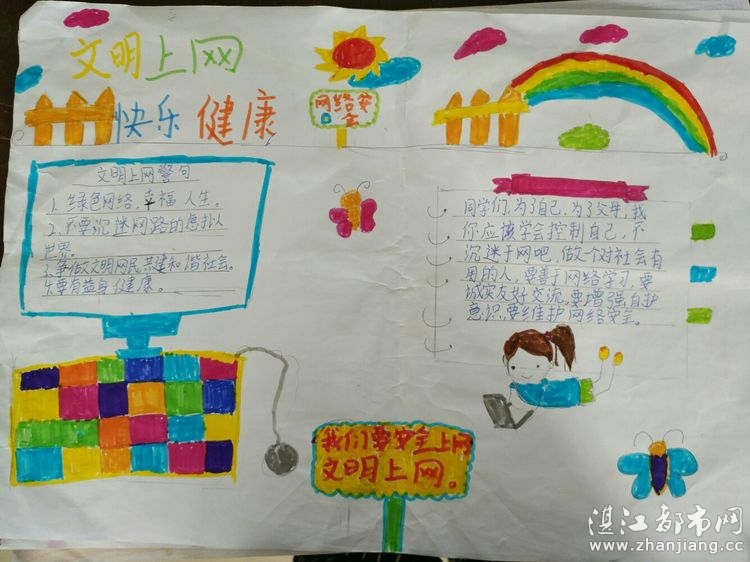 文明上网
快乐 健康
网络安
全
文明上网警句
1、绿色网络,幸福人生。
2、不要沉迷网路的虚拟
世界。
3、争做文明网民共建和谐社会。
4、要有益身健康。
同学们,为了自己,为了父母,我
你应该学会控制自己,不
沉迷于网吧,做一个对社会有
用的人,要善于网络学习,要
诚实友好交流,要增强自护
意识,要维护网络安全。
我们要安全上网
文明上网。
湛江都市网
www.zhanjiang.cc